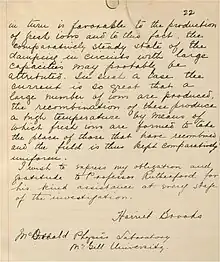 22
in turn is favorable to the production
of fresh ions and to this fact, the
comparatively steady state of the
damping in circuits with large
capacities may probably be
attributed. In such a case the
current is so great that a
large number of ions are produced,
the recombination of these produce
a high temperature by means of
which fresh ions are formed to take
the place of those that have recombined
and the field is thus kept comparatively
uniform.
I wish to express my obligation and
gratitude to Professor Rutherford for
his kind assistance at every step
of the investigation.
Harriet Brooks
McDonald Physics Laboratory
McGill University